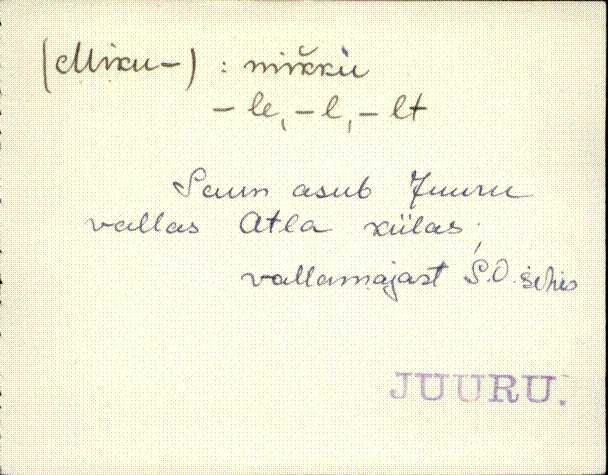 (Miku-) : mikku
-le, -l, -lt
Saun asub Juuru
vallas Atla külas,
vallamajast S.O.
JUURU.